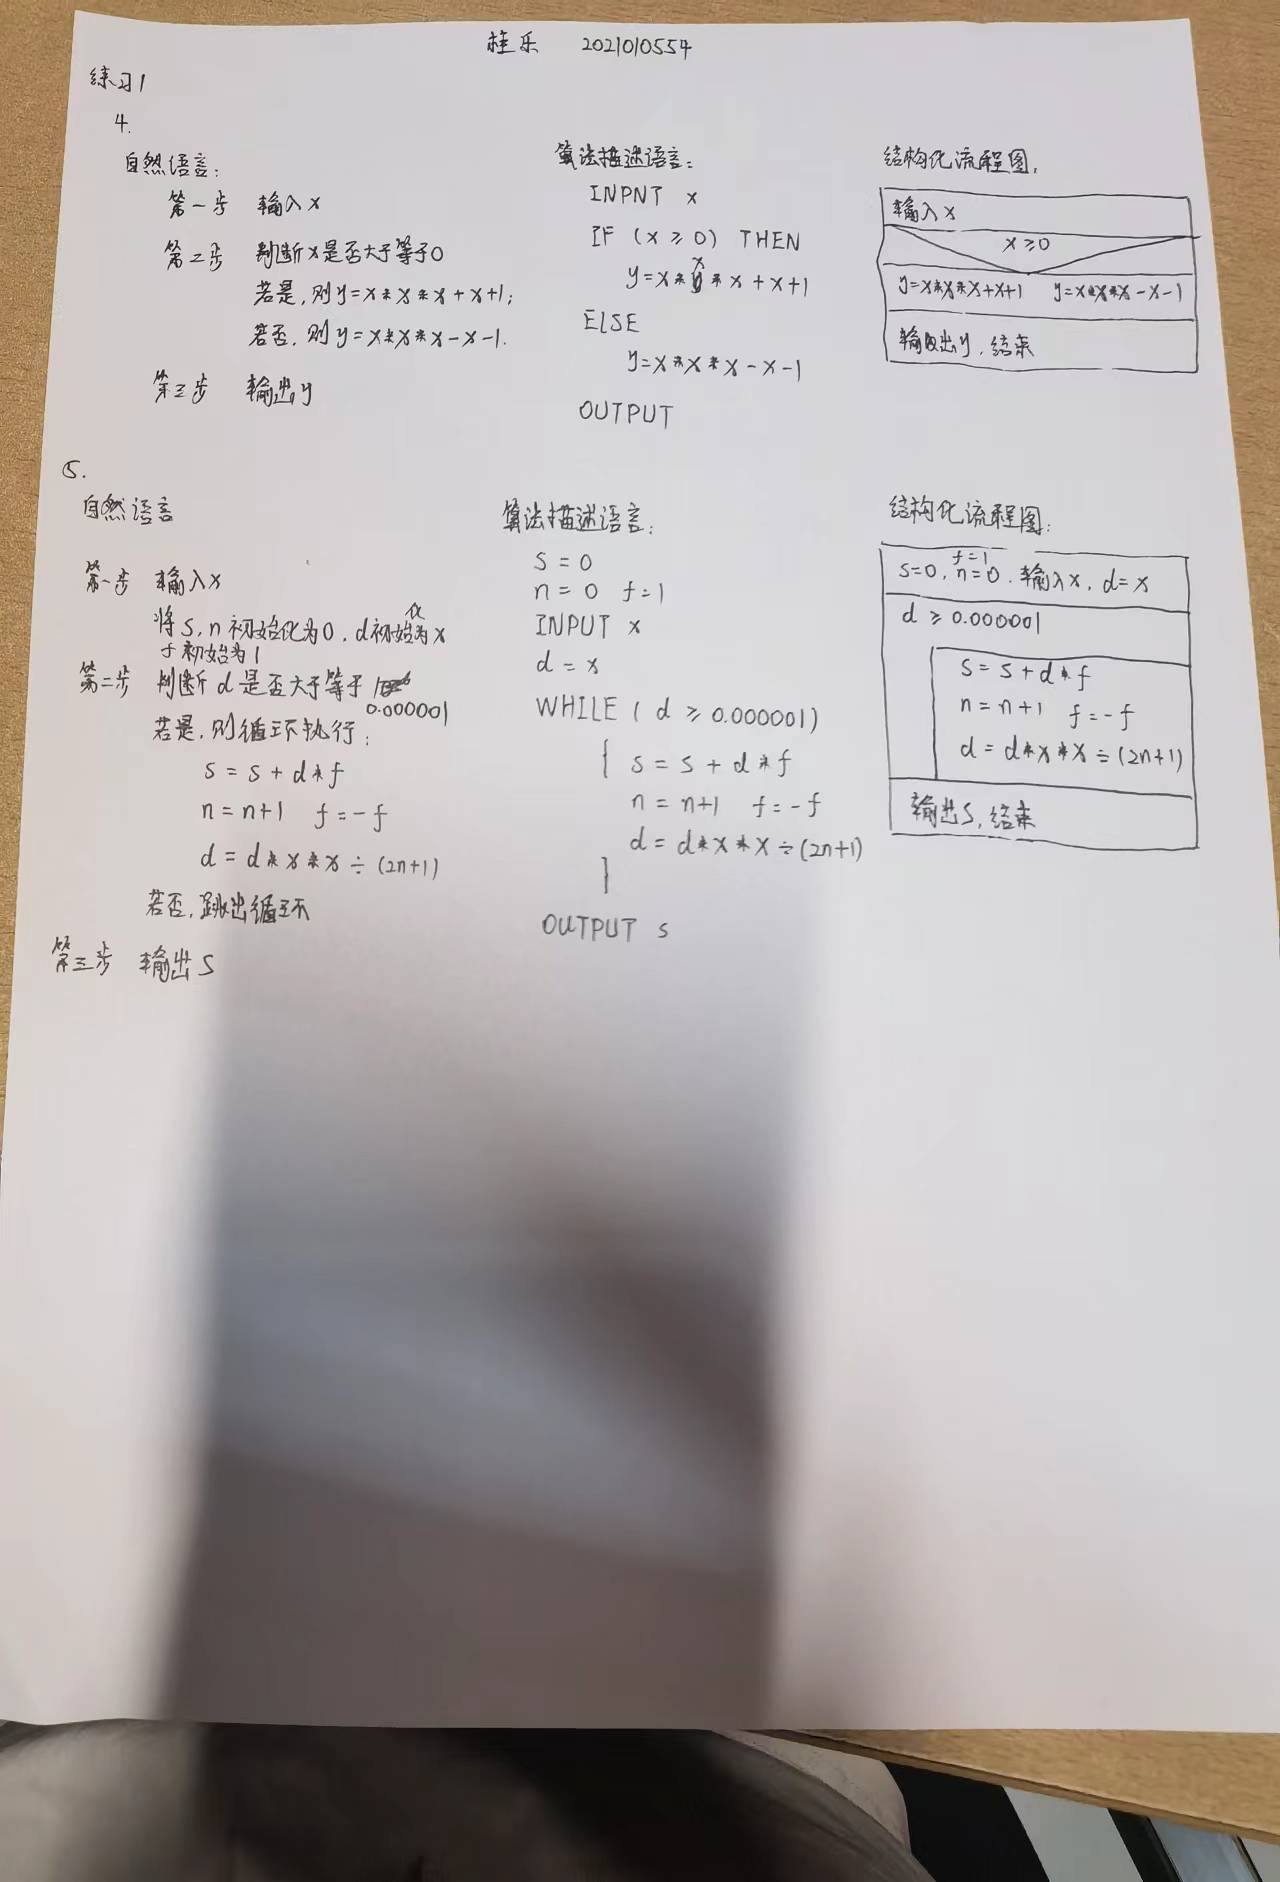 桂乐 2021010554
练习1
4.
自然语言:
第一步 输入x
第二步 判断x是否大于等于0
若是,则y=x*x*x+x+1;
若否,则y=x*x*x-x-1.
第三步 输出y
算法描述语言:
INPNT x
IF (x≥0) THEN
y=x*x*x+x+1
ELSE
y=x*x*x-x-1
OUTPUT
结构化流程图.
输入x
x≥0
y=x*x*x+x+1 y=x*x*x-x-1
输出y,结束
5.
自然语言
第一步 输入x
将s,n初始化为0,d初始化为x
f初始为1
第二步 判断d是否大于等于
0.000001
若是,则循环执行:
s=s+d*f
n=n+1 f=-f
d=d*x*x÷(2n+1)
若否,跳出循环
第三步 输出s
算法描述语言:
s=0
n=0 f=1
INPUT x
d=x
WHILE(d≥0.000001)
{ s=s+d*f
n=n+1 f=-f
d=d*x*x÷(2n+1)
}
OUTPUT s
结构化流程图:
f=1
s=0,n=0.输入x,d=x
d≥0.000001
s=s+d*f
n=n+1 f=-f
d=d*x*x÷(2n+1)
输出s,结束